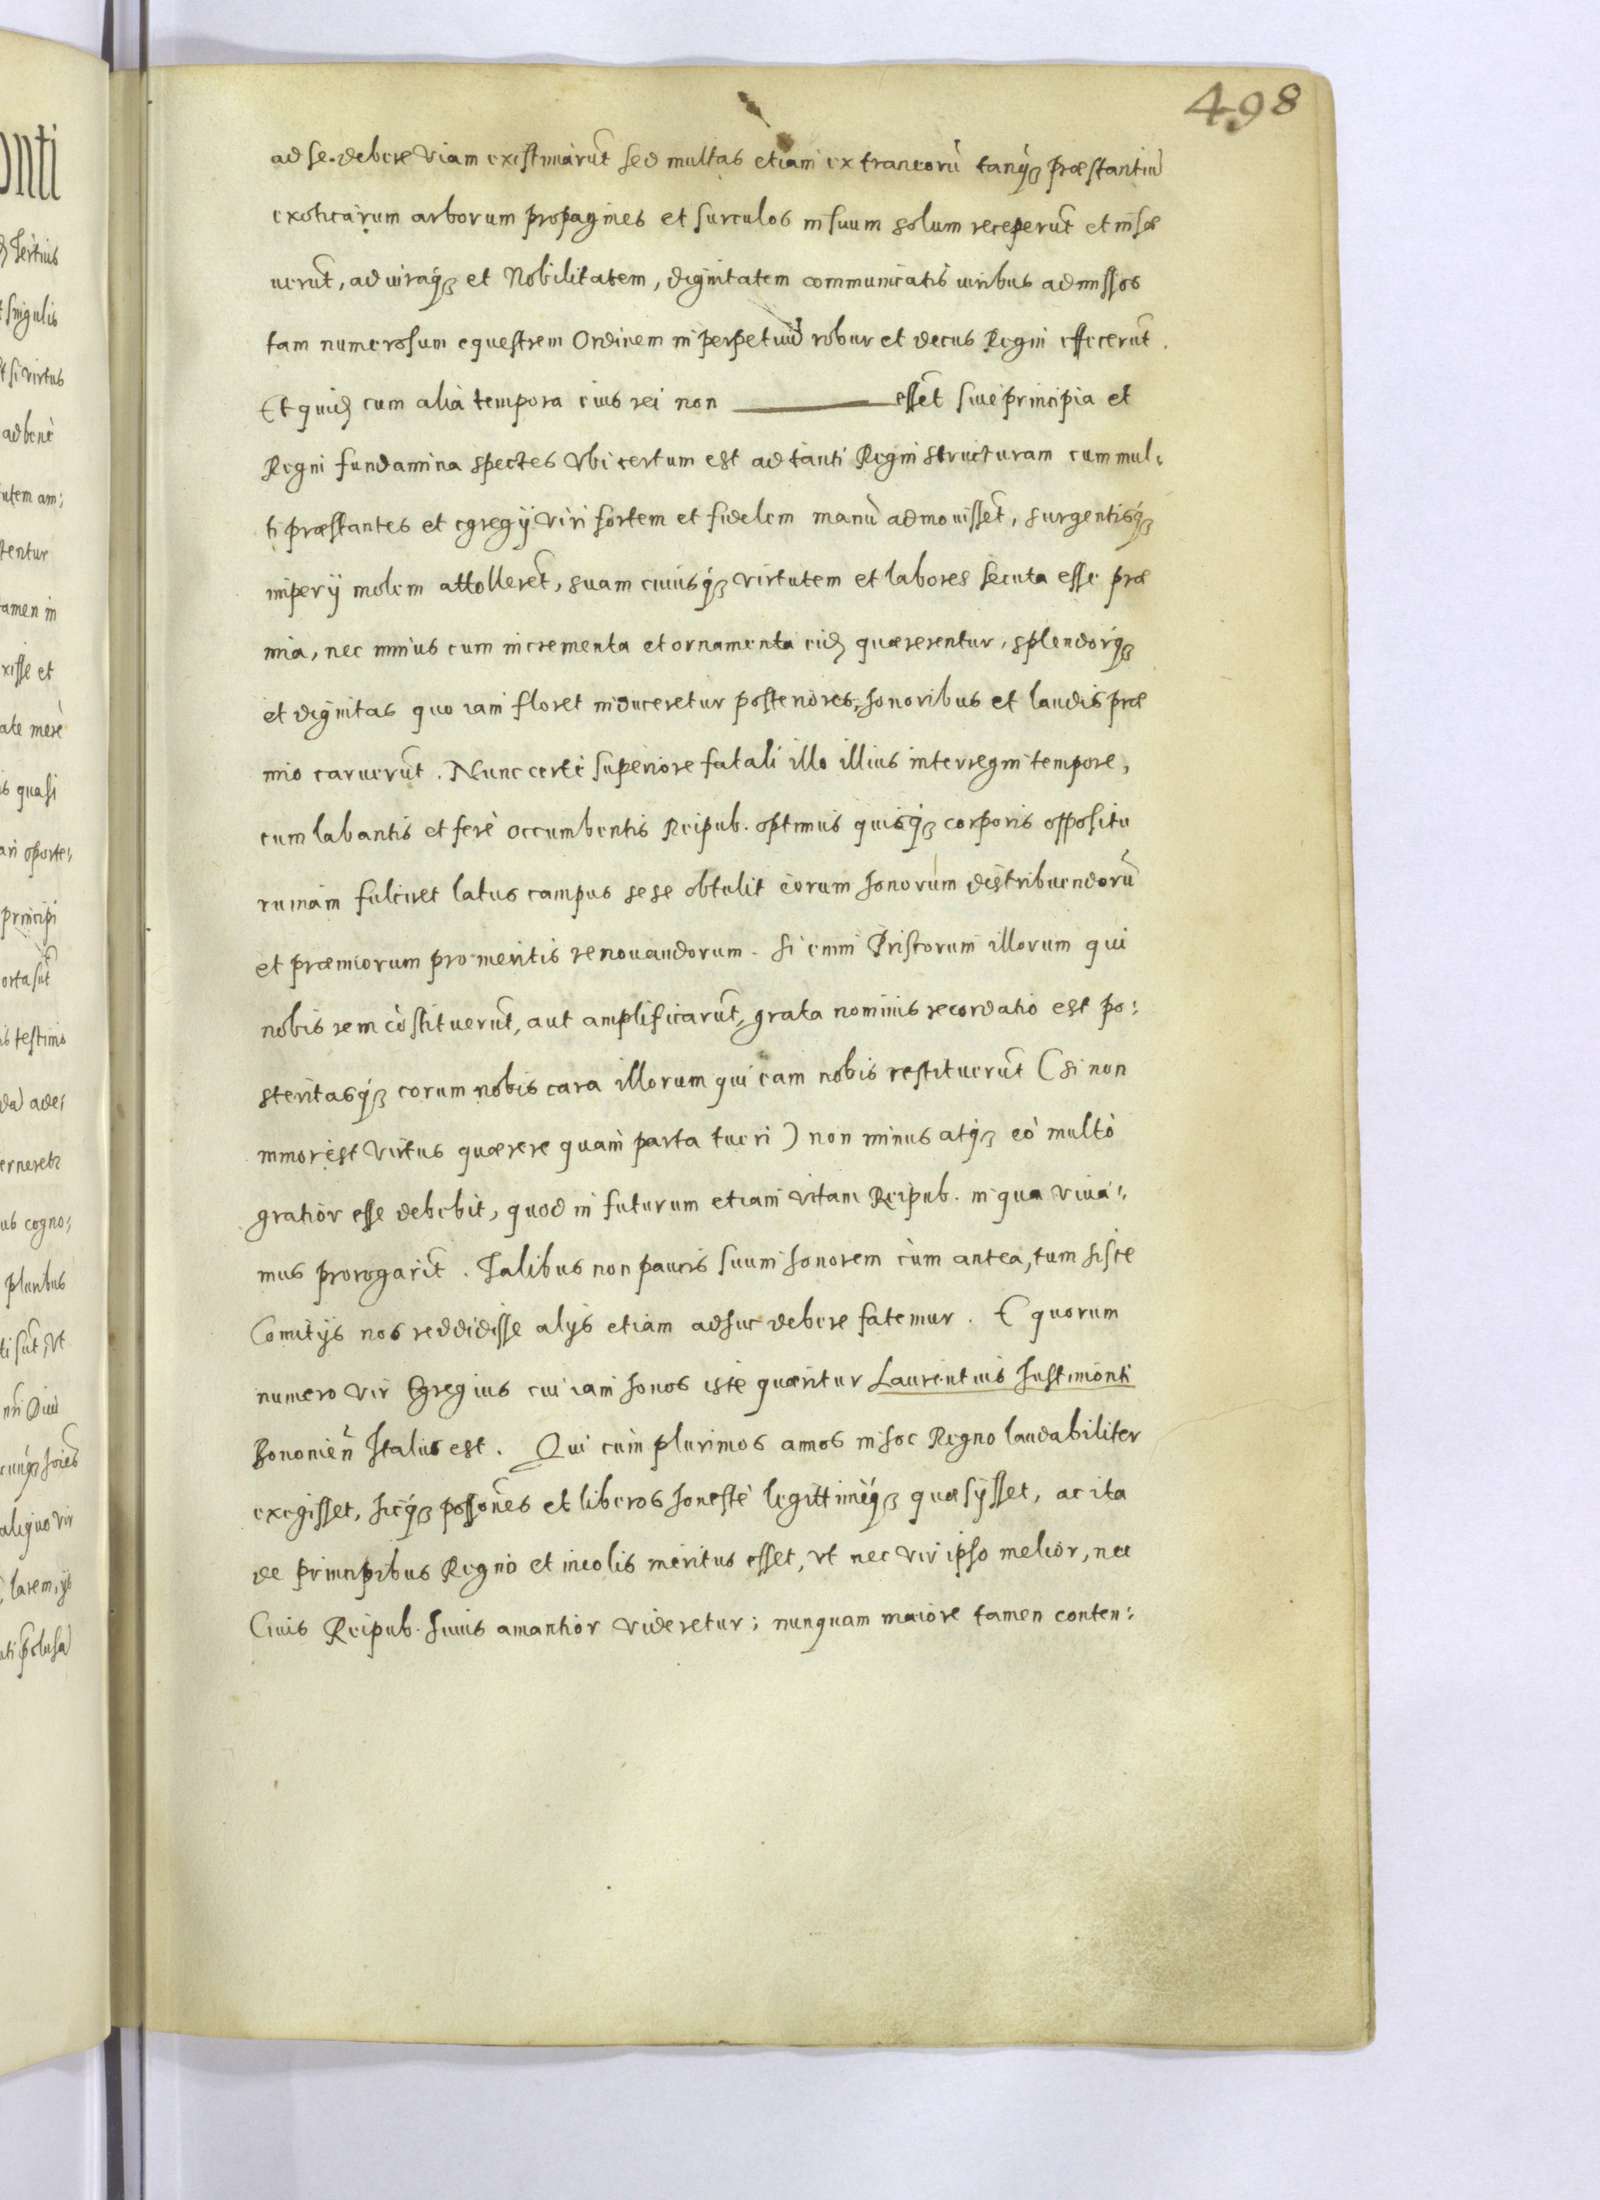 498
onti
ad se debere viam existimarūt sed multas etiam extraneorū tanq̨ʒ præstantiū
exoticarum arborum propagines et surculos in suum solum receperūt et insæ
uerūt, ad iuraq́ʒ et Nobilitatem, dignitatem communicatis uiribus admissos
tam numerosum equestrem Ordinem in perpetuū robur et decus Regni effecerūt.
Et quidē cum alia tempora eius rei non ——— essēt siue principia et
Regni fundamina spectes vbi certum est ad tanti Regni structuram cum mul:
ti præstantes et egregij viri fortem et fidelem manū admouissēt, surgentisq́ʒ
imperij molem attollerēt, suam cuiusq́ʒ virtutem et labores secuta esse præ
mia, nec minus cum incrementa et ornamenta eid̨ quærerentur, splendorq́ʒ
et dignitas quo iam floret induceretur posteriores, honoribus et laudis præ
mio caruerūt. Nunc certè superiore fatali illo illius interregni tempore,
cum labantis et ferè occumbentis Reipub. optimus quisq́ʒ corporis oppositu
ruinam fulciret latus campus sese obtulit eorum honorum distribuendorū
et præmiorum pro meritis renouandorum. Si enim Priscorum illorum qui
nobis rem cōstituerūt, aut amplificarūt, grata nominis recordatio est po:
steritasq́ʒ eorum nobis cara illorum qui eam nobis restituerūt (si non
minor est virtus quærere quam parta tueri) non minus atq́ʒ eò multò
gratior esse debebit, quod in futurum etiam vitam Reipub. in qua viua:
mus prorogarīt. Talibus non paucis suum honorem cùm antea, tum hisce
Comitijs nos reddidisse alijs etiam adhuc debere fatemur. E quorum
numero vir Egregius cui iam honos iste quæritur Laurentius Justimonti
Bononien̄ Italus est. Qui cum plurimos annos in hoc Regno laudabiliter
exegisset, hicq́ʒ possōnes et liberos honestè legittimèq́ʒ quæsijsset, ac ita
de principibus Regno et incolis meritus esset, vt nec vir ipso melior, nec
Ciuis Reipub. huius amantior videretur; nunquam maiore tamen conten: